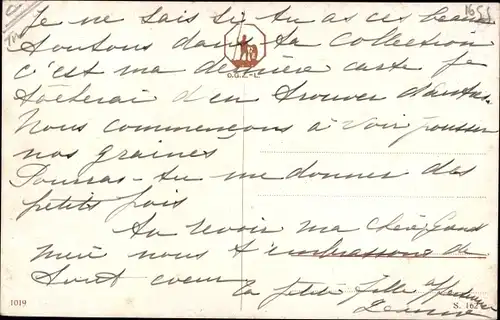 1655
Je ne sais si tu as ces beaux
toutous dans ta collection
O.G.Z.-L.
c'est ma dernière carte je
tâcherai d'en trouver d'autres.
Nous commençons à voir pousser
nos graines
Pourras-tu me donner des
petits pois
Au revoir ma chère Grand
mère nous t'embrassons de
tout coeur
ta petite fille affectueuse
1019
S. 16